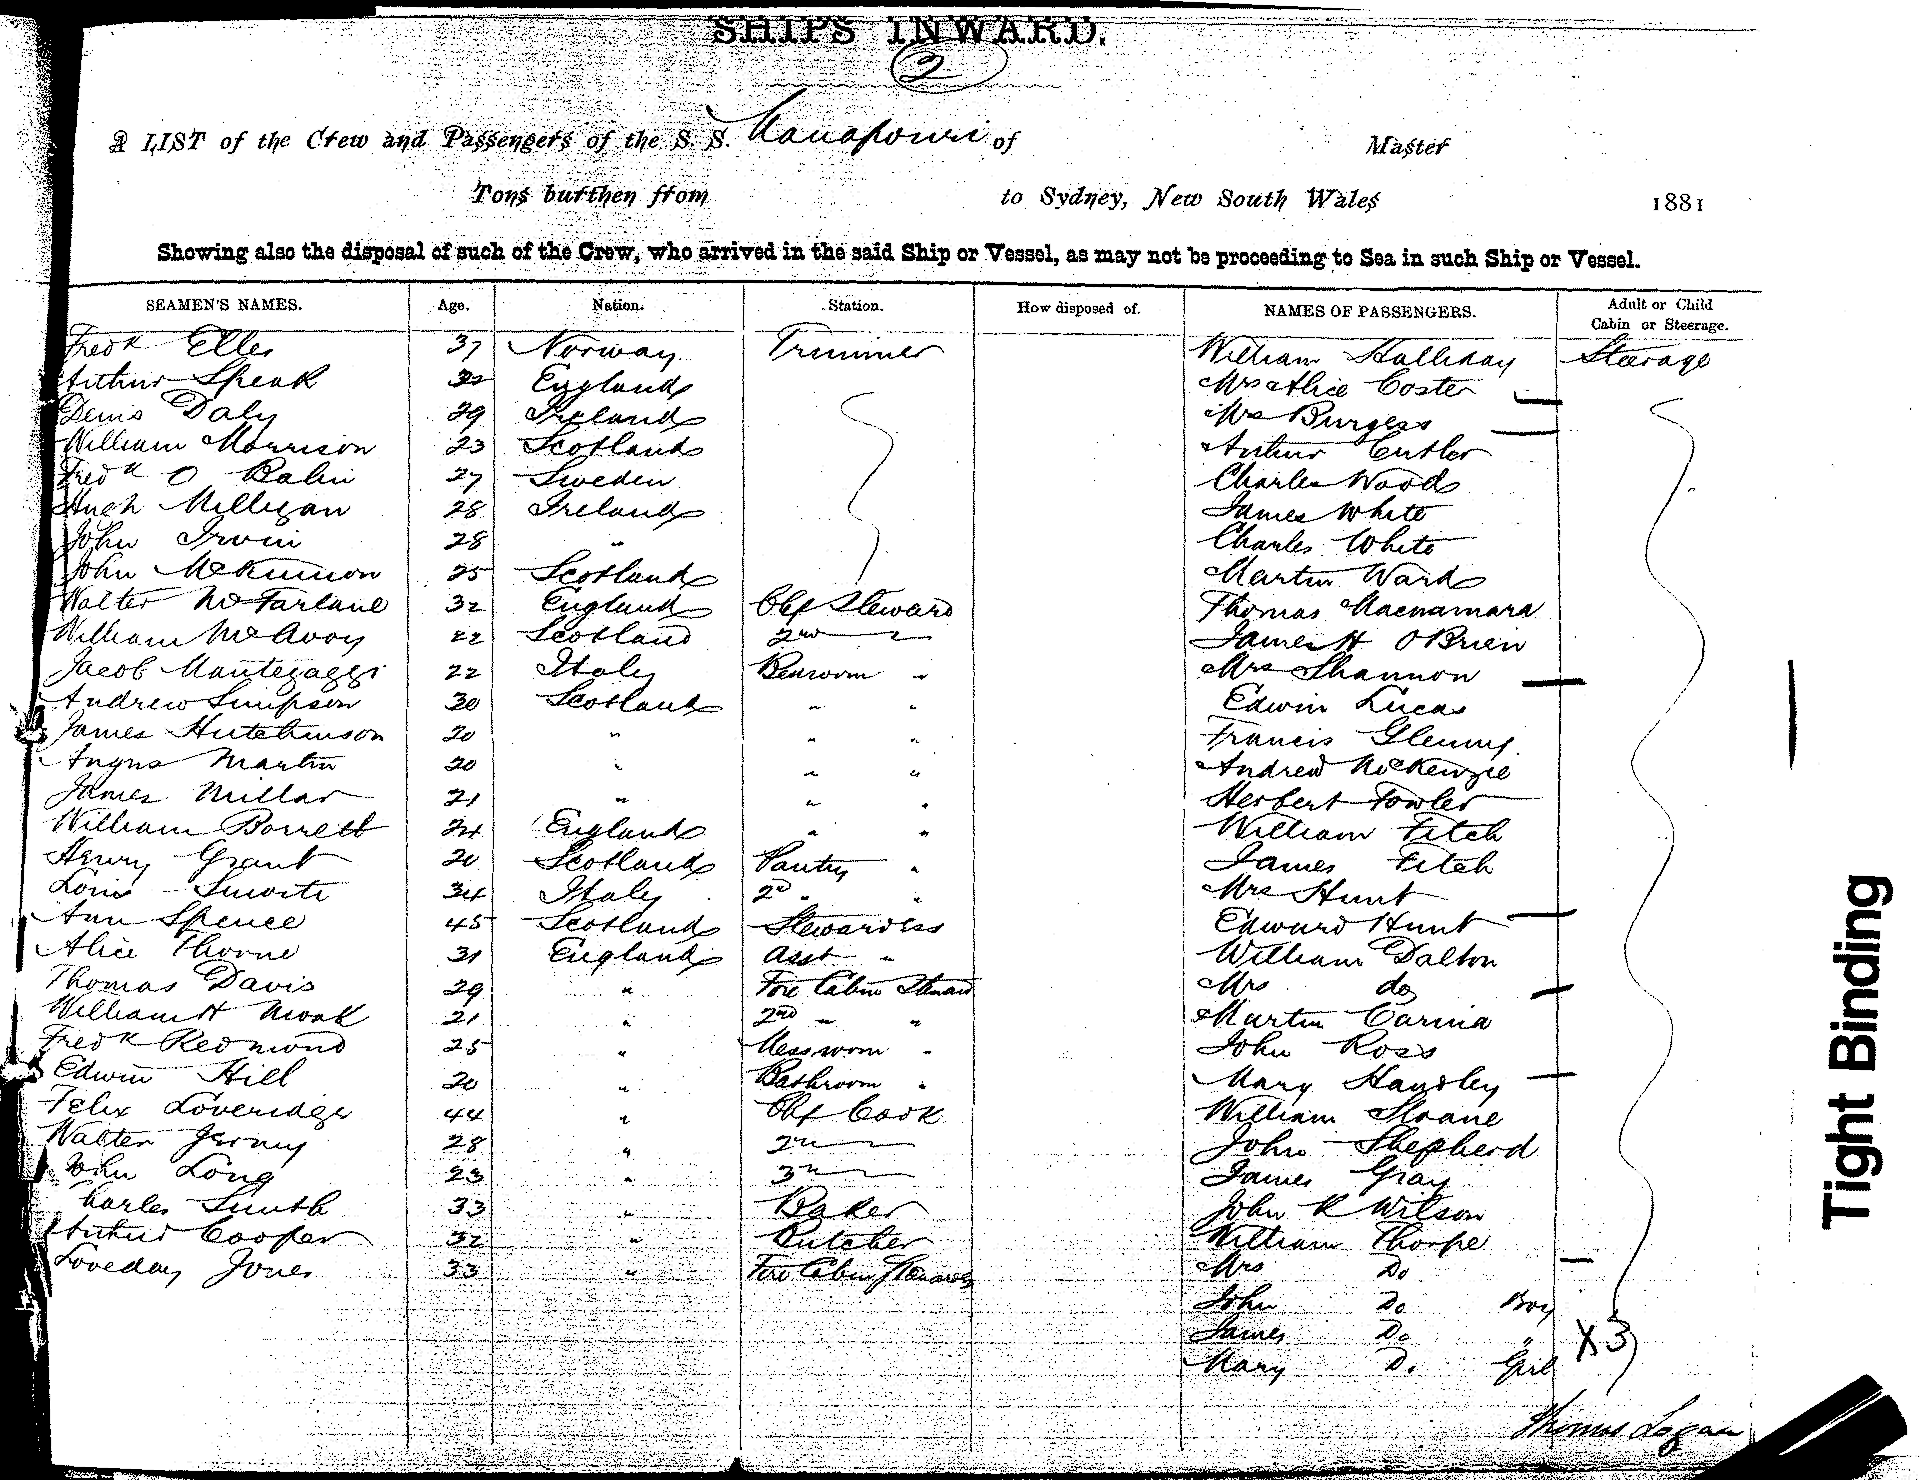 SHIPS INWARD.
2
A LIST of the Crew and Passengers of the S. S. Manapouri of Master
Tons burthen from to Sydney, New South Wales 1881
Showing also the disposal of such of the Crew, who arrived in the said Ship or Vessel, as may not be proceeding to Sea in such Ship or Vessel.
SEAMEN'S NAMES. Age. Nation. Station. How disposed of. NAMES OF PASSENGERS. Adult or Child Cabin or Steerage.
Fredk Elles 37 Norway Trimmer William Halliday Steerage
Arthur Speak England Mrs Alice Coster
Denis Daly 29 Ireland Mrs Burgess
William Morrison 23 Scotland Arthur Cutler
Fredk O Balin 27 Sweden Charles Wood
Hugh Milligan 28 Ireland James White
John Irvin 28 " Charles White
John McKinnon 25 Scotland Martin Ward
Walter McFarlane 32 England Chf Steward Thomas Macnamara
William McAvoy 22 Scotland 2nd " James H OBrien
Jacob Mantegaggi 22 Italy " Mrs Shannon
Andrew Simpson 30 Scotland " " Edwin Lucas
James Hutchinson 20 " " " Francis Glenny
Angus Martin 20 " " " Andrew McKenzie
James Millar 21 " " " Herbert Fowler
William Borrett 24 England " " William Fitch
Henry Grant 20 Scotland Pantry " James Fitch
Louis 34 Italy 2d " " Mrs Hunt
Ann Spence 45 Scotland Stewardess Edward Hunt
Alice Thorne 31 England Asst " William Dalton
Thomas Davis 29 " Fore Cabin Steward Mrs do
William H 21 " 2nd " " Martin Carina
Fredk Redmond 25 " Messroom " John Ross
Edwin Hill 20 " Bathroom " Mary Handley
Felix Loveridge 44 " Chf Cook William Sloane
Walter Jermy 28 " 2nd " John Shepherd
John Long 23 " 3rd " James Gray
Charles Smith 33 " Baker John R Wilson
Arthur Cooper 32 " Butcher William Thorpe
Loveday Jones 33 " Fore Cabin Stewardess Mrs Do
John Do Boy
James Do "
Mary Do Girl
X3
Thomas Logan
Tight Binding